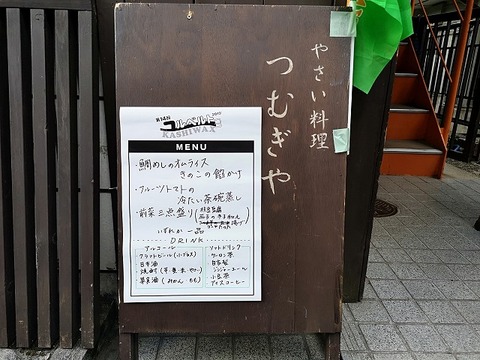 やさい料理
つむぎや
コルベルト
KASHIWAX
MENU
・鯛めしのオムライス
きのこの餡かけ
・フルーツトマトの
冷たい茶碗蒸し
・前菜三点盛り
いずれか一品
DRINK
アルコール
クラフトビール(小グラス)
日本酒
焼酎(芋・麦・米
果実酒(みかん もも)
ソフトドリンク
ウーロン茶
自家製
ジンジャーエール
小豆茶
アイスコーヒー